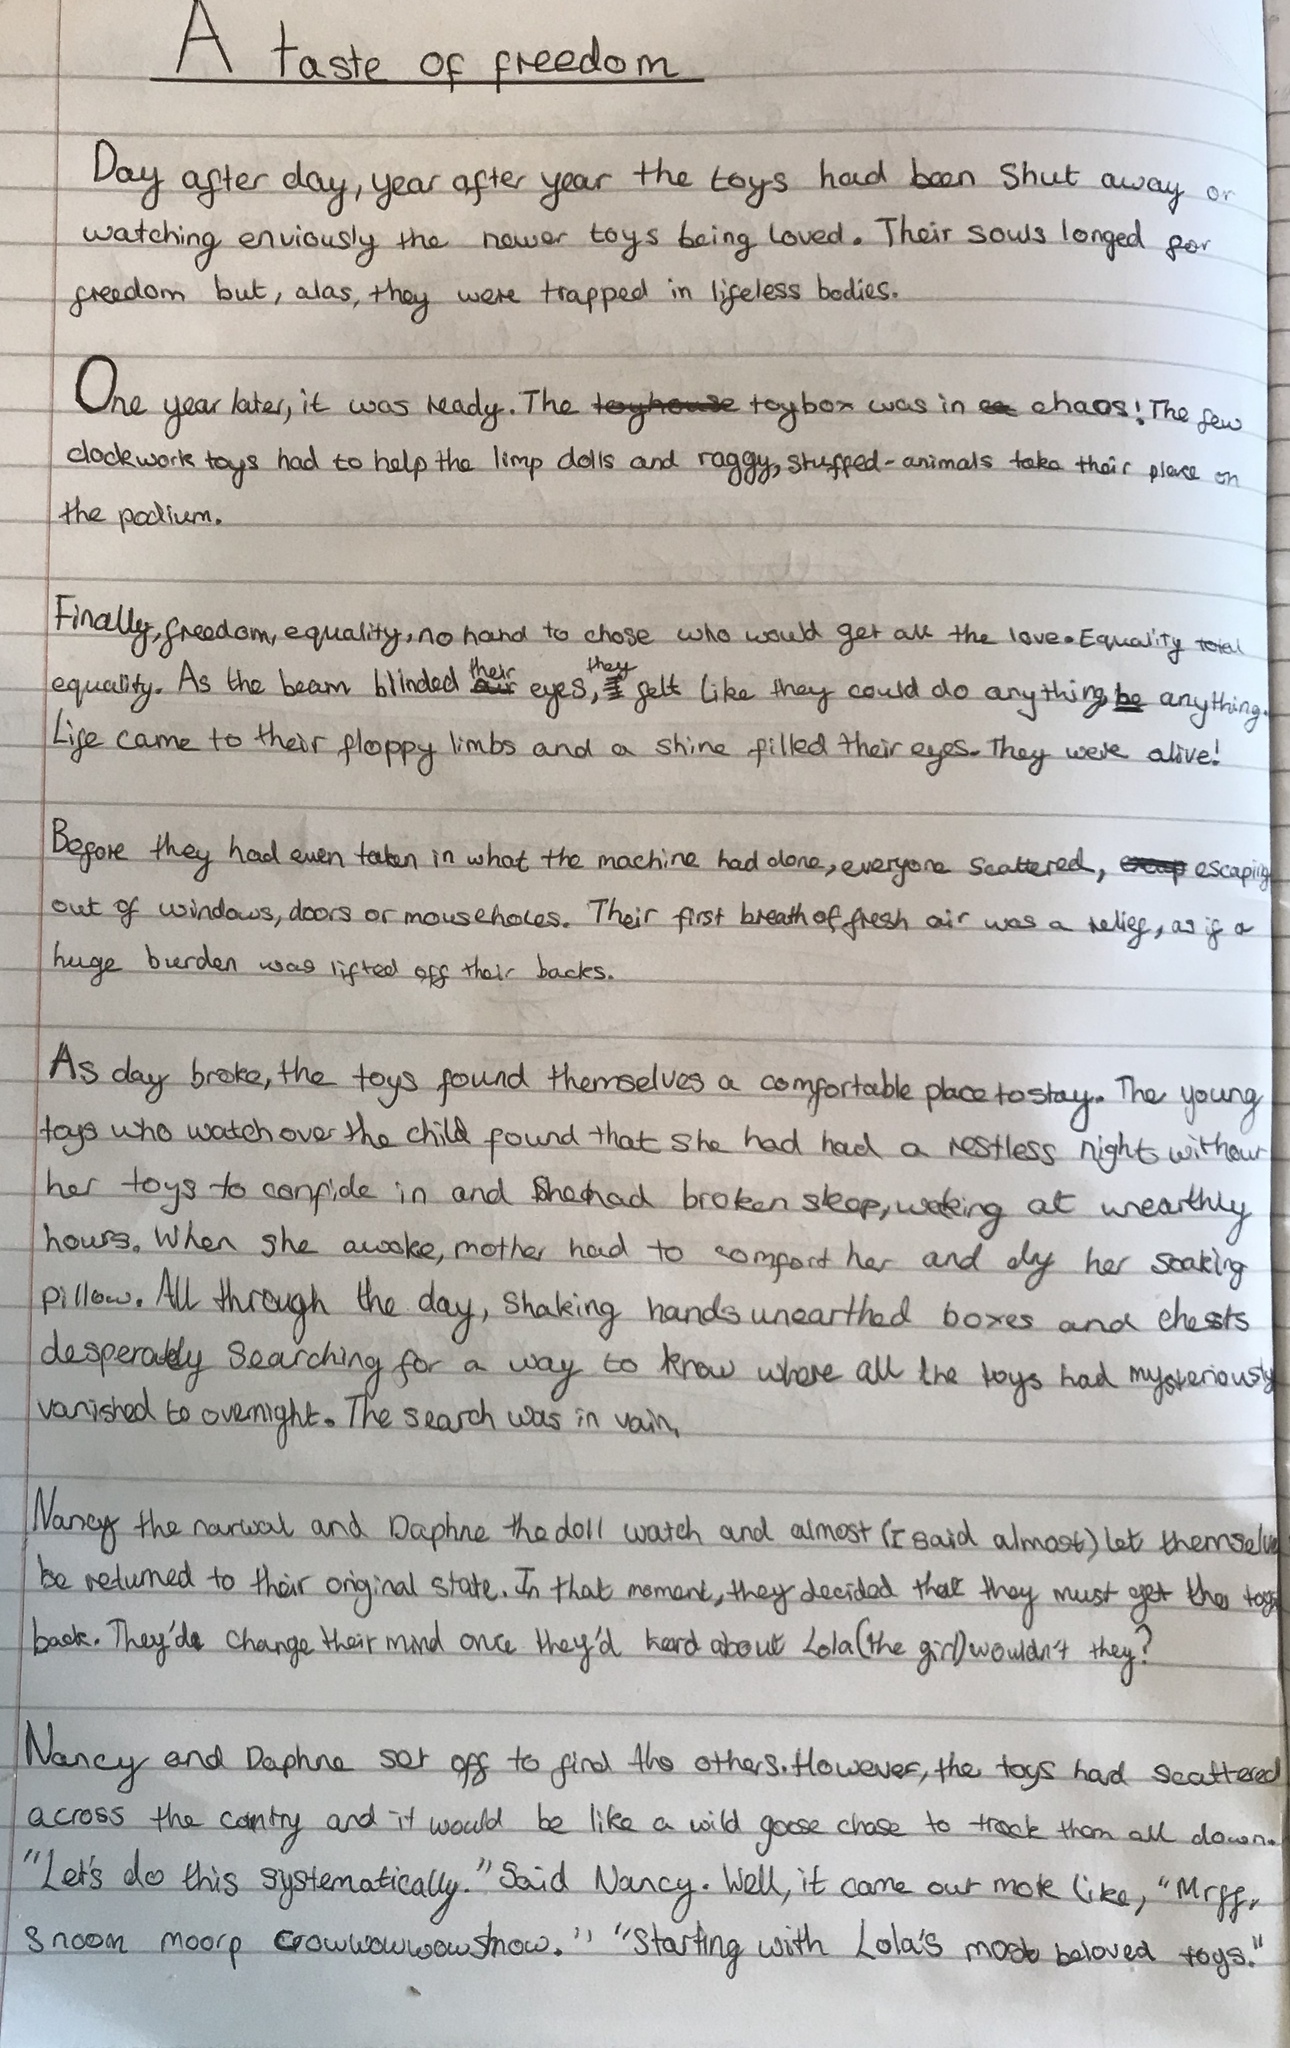 A taste of freedom
Day after day, year after year the toys had been shut away or
watching enviously the newer toys being loved. Their souls longed for
freedom but, alas, they were trapped in lifeless bodies.
One year later, it was ready. The toyhouse toybox was in chaos! The few
clockwork toys had to help the limp dolls and raggy, stuffed-animals take their place on
the podium.
Finally, freedom, equality, no hand to chose who would get all the love. Equality total
equality. As the beam blinded their eyes, they felt like they could do anything, be anything.
Life came to their floppy limbs and a shine filled their eyes. They were alive!
Before they had even taken in what the machine had done, everyone scattered, escaping
out of windows, doors or mouseholes. Their first breath of fresh air was a relief, as if a
huge burden was lifted off their backs.
As day broke, the toys found themselves a comfortable place to stay. The young
toys who watch over the child found that she had had a restless night without
her toys to confide in and she had broken sleep, waking at unearthly
hours. When she awoke, mother had to comfort her and dry her soaking
pillow. All through the day, shaking hands unearthed boxes and chests
desperately searching for a way to know where all the toys had mysteriously
vanished to overnight. The search was in vain.
Nancy the narwal and Daphne the doll watch and almost (I said almost) let themselves
be returned to their original state. In that moment, they decided that they must get the toys
back. They'd change their mind once they'd herd about Lola (the girl) wouldn't they?
Nancy and Daphne set off to find the others. However, the toys had scattered
across the contry and it would be like a wild goose chase to track them all down.
"Let's do this systematically." Said Nancy. Well, it came out more like, "Mrff,
snoom moorp crowwowwowsnow." "Starting with Lola's most beloved toys."